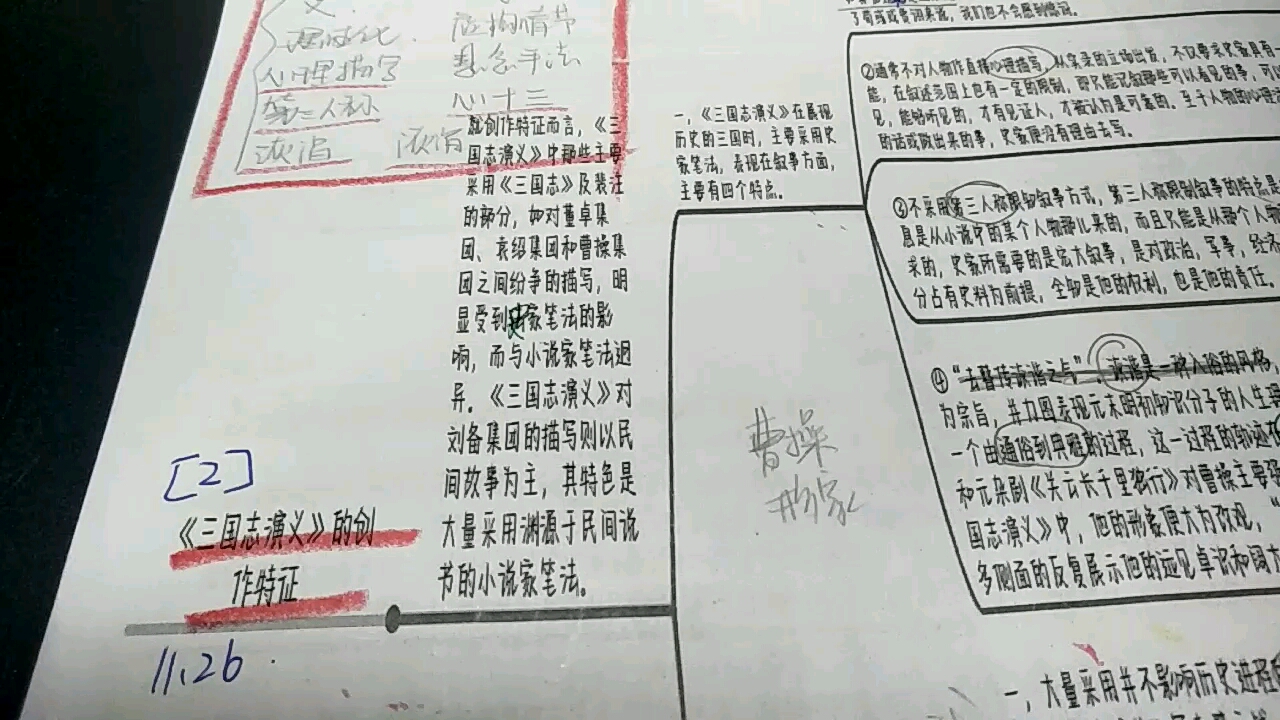 理性化
虚构情节
心理描写
悬念手法
第三人称
八十三
诙谐
诙谐
就创作特征而言，《三
国志演义》中那些主要
采用《三国志》及裴注
的部分，如对董卓集
团、袁绍集团和曹操集
团之间纷争的描写，明
显受到史家笔法的影
响，而与小说家笔法迥
异。《三国志演义》对
刘备集团的描写则以民
间故事为主，其特色是
大量采用渊源于民间说
书的小说家笔法。
[2]
《三国志演义》的创
作特征
11.26
一，《三国志演义》在展现
历史的三国时，主要采用史
家笔法，表现在叙事方面，
主要有四个特点。
曹操
了荀彧或鲁迅来说，我们也不会感到惊讶。
②通常不对人物作直接心理描写，从实录的立场出发，不仅要求史家具有
能，在叙述范围上也有一定的限制，即只能记叙那些可以看见的事，可以
见，能够听见的，才有见证人，才被认为是可靠的。至于人物的心理
的话或做出来的事，史家便没有理由去写。
③不采用第三人称限制叙事方式，第三人称限制叙事的特点是
息是从小说中的某个人物那儿来的，而且只能是从那个人
求的，史家所需要的是宏大叙事，是对政治，军事，经济
分占有史料为前提，全知是他的权利，也是他的责任。
④“去瞽传诙谐之气”。诙谐是一种入俗的风格，
为宗旨，并力图表现元末明初知识分子的人生
一个由通俗到典雅的过程，这一过程的轨迹在
和元杂剧《关云长千里独行》对曹操主要
国志演义》中，他的形象便大为改观，“
多侧面的反复展示他的远见卓识和阔大
一，大量采用并不影响历史进程